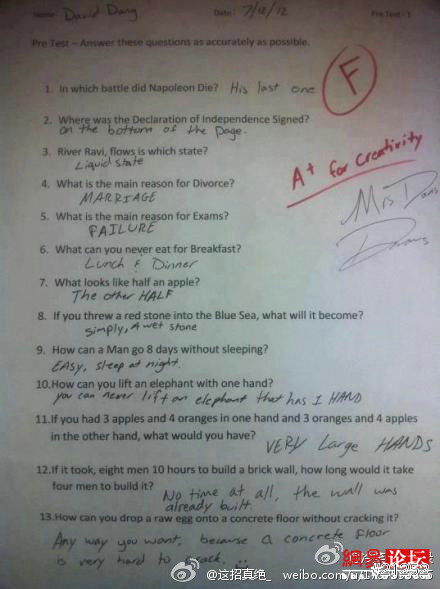 Name: David Dang Date: 7/18/12 Pre Test - 1
Pre Test – Answer these questions as accurately as possible.
1. In which battle did Napoleon Die? His last one
F
2. Where was the Declaration of Independence Signed?
on the bottom of the Page.
A+ for Creativity
3. River Ravi, flows is which state?
Liquid state
4. What is the main reason for Divorce?
MARRIAGE
Mrs
5. What is the main reason for Exams?
FAILURE
6. What can you never eat for Breakfast?
Lunch & Dinner
7. What looks like half an apple?
The other HALF
8. If you threw a red stone into the Blue Sea, what will it become?
simply, A wet stone
9. How can a Man go 8 days without sleeping?
EASY, sleep at night.
10.How can you lift an elephant with one hand?
you can never lift an elephant that has 1 HAND
11.If you had 3 apples and 4 oranges in one hand and 3 oranges and 4 apples
in the other hand, what would you have?
VERY Large HANDS
12.If it took, eight men 10 hours to build a brick wall, how long would it take
four men to build it?
No time at all, the wall was
already built.
13.How can you drop a raw egg onto a concrete floor without cracking it?
Any way you want, because a concrete floor
is very hard to crack...
網易论坛
@这招真绝_ weibo.com/